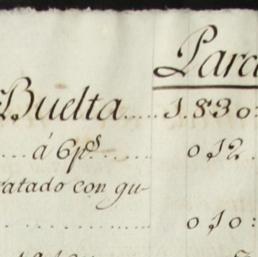 Para
Buelta..... 1.830:
... á 6 ps ........ 012.
ratado con gu-
............ 010: